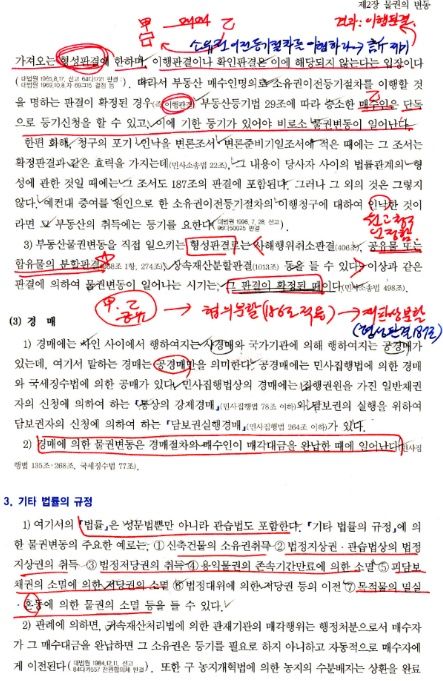 제2장 물권의 변동
결과: 이행판결
甲 매매 乙
소유권이전등기절차를 이행하라
가져오는 형성판결에 한하며, 이행판결이나 확인판결은 이에 해당되지 않는다는 입장이다
(대법원 1965.8.17, 선고 64다1721 판결
대법원 1969.10.8 자 69그15 결정 등). 따라서 부동산 매수인명의로 소유권이전등기절차를 이행할 것
을 명하는 판결이 확정된 경우(즉 이행판결) 부동산등기법 29조에 따라 승소한 매수인은 단독
으로 등기신청을 할 수 있고, 이에 기한 등기가 있어야 비로소 물권변동이 일어난다.
한편 화해, 청구의 포기·인낙을 변론조서·변론준비기일조서에 적은 때에는 그 조서는
확정판결과 같은 효력을 가지는데(민사소송법 22조), 그 내용이 당사자 사이의 법률관계의 형
성에 관한 것일 때에는 그 조서도 187조의 판결에 포함된다. 그러나 그 외의 것은 그렇지
않다. 예컨대 증여를 원인으로 한 소유권이전등기절차의 이행청구에 대하여 인낙한 것이
라면 그 부동산의 취득에는 등기를 요한다(대법원 1998. 7. 28, 선고
96다50025 판결).
3) 부동산물권변동을 직접 일으키는 형성판결로는 사해행위취소판결(406조), 공유물 또는
합유물의 분할판결(268조 1항, 274조), 상속재산분할판결(1013조) 등을 들 수 있다. 이상과 같은
판결에 의하여 물권변동이 일어나는 시기는, 그 판결이 확정된 때이다(민사소송법 498조).
甲·乙 공유 → 협의분할(186조 적용) → 재판상분할
(형성판결, 187조)
(3) 경 매
1) 경매에는 사인 사이에서 행하여지는 사경매와 국가기관에 의해 행하여지는 공경매가
있는데, 여기서 말하는 경매는 공경매만을 의미한다. 공경매에는 민사집행법에 의한 경매
와 국세징수법에 의한 공매가 있다. 민사집행법상의 경매에는 집행권원을 가진 일반채권
자의 신청에 의하여 하는 『통상의 강제경매』(민사집행법 78조 이하)와 담보권의 실행을 위하여
담보권자의 신청에 의하여 하는 『담보권실행경매』(민사집행법 264조 이하)가 있다.
2) 경매에 의한 물권변동은 경매절차의 매수인이 매각대금을 완납한 때에 일어난다(민사집
행법 135조·268조, 국세징수법 77조).
3. 기타 법률의 규정
1) 여기서의 『법률』은 성문법뿐만 아니라 관습법도 포함한다. 『기타 법률의 규정』에 의
한 물권변동의 주요한 예로는, ① 신축건물의 소유권취득 ② 법정지상권·관습법상의 법정
지상권의 취득 ③ 법정저당권의 취득 ④ 용익물권의 존속기간만료에 의한 소멸 ⑤ 피담보
채권의 소멸에 의한 저당권의 소멸 ⑥ 법정대위에 의한 저당권 등의 이전 ⑦ 목적물의 멸실
·혼동에 의한 물권의 소멸 등을 들 수 있다.
2) 판례에 의하면, 귀속재산처리법에 의한 관재기관의 매각행위는 행정처분으로서 매수자
가 그 매수대금을 완납하면 그 소유권은 등기를 필요로 하지 아니하고 자동적으로 매수자에
게 이전된다(대법원 1984.12.11, 선고
84다카557 전원합의체 판결). 또한 구 농지개혁법에 의한 농지의 수분배자는 상환을 완료